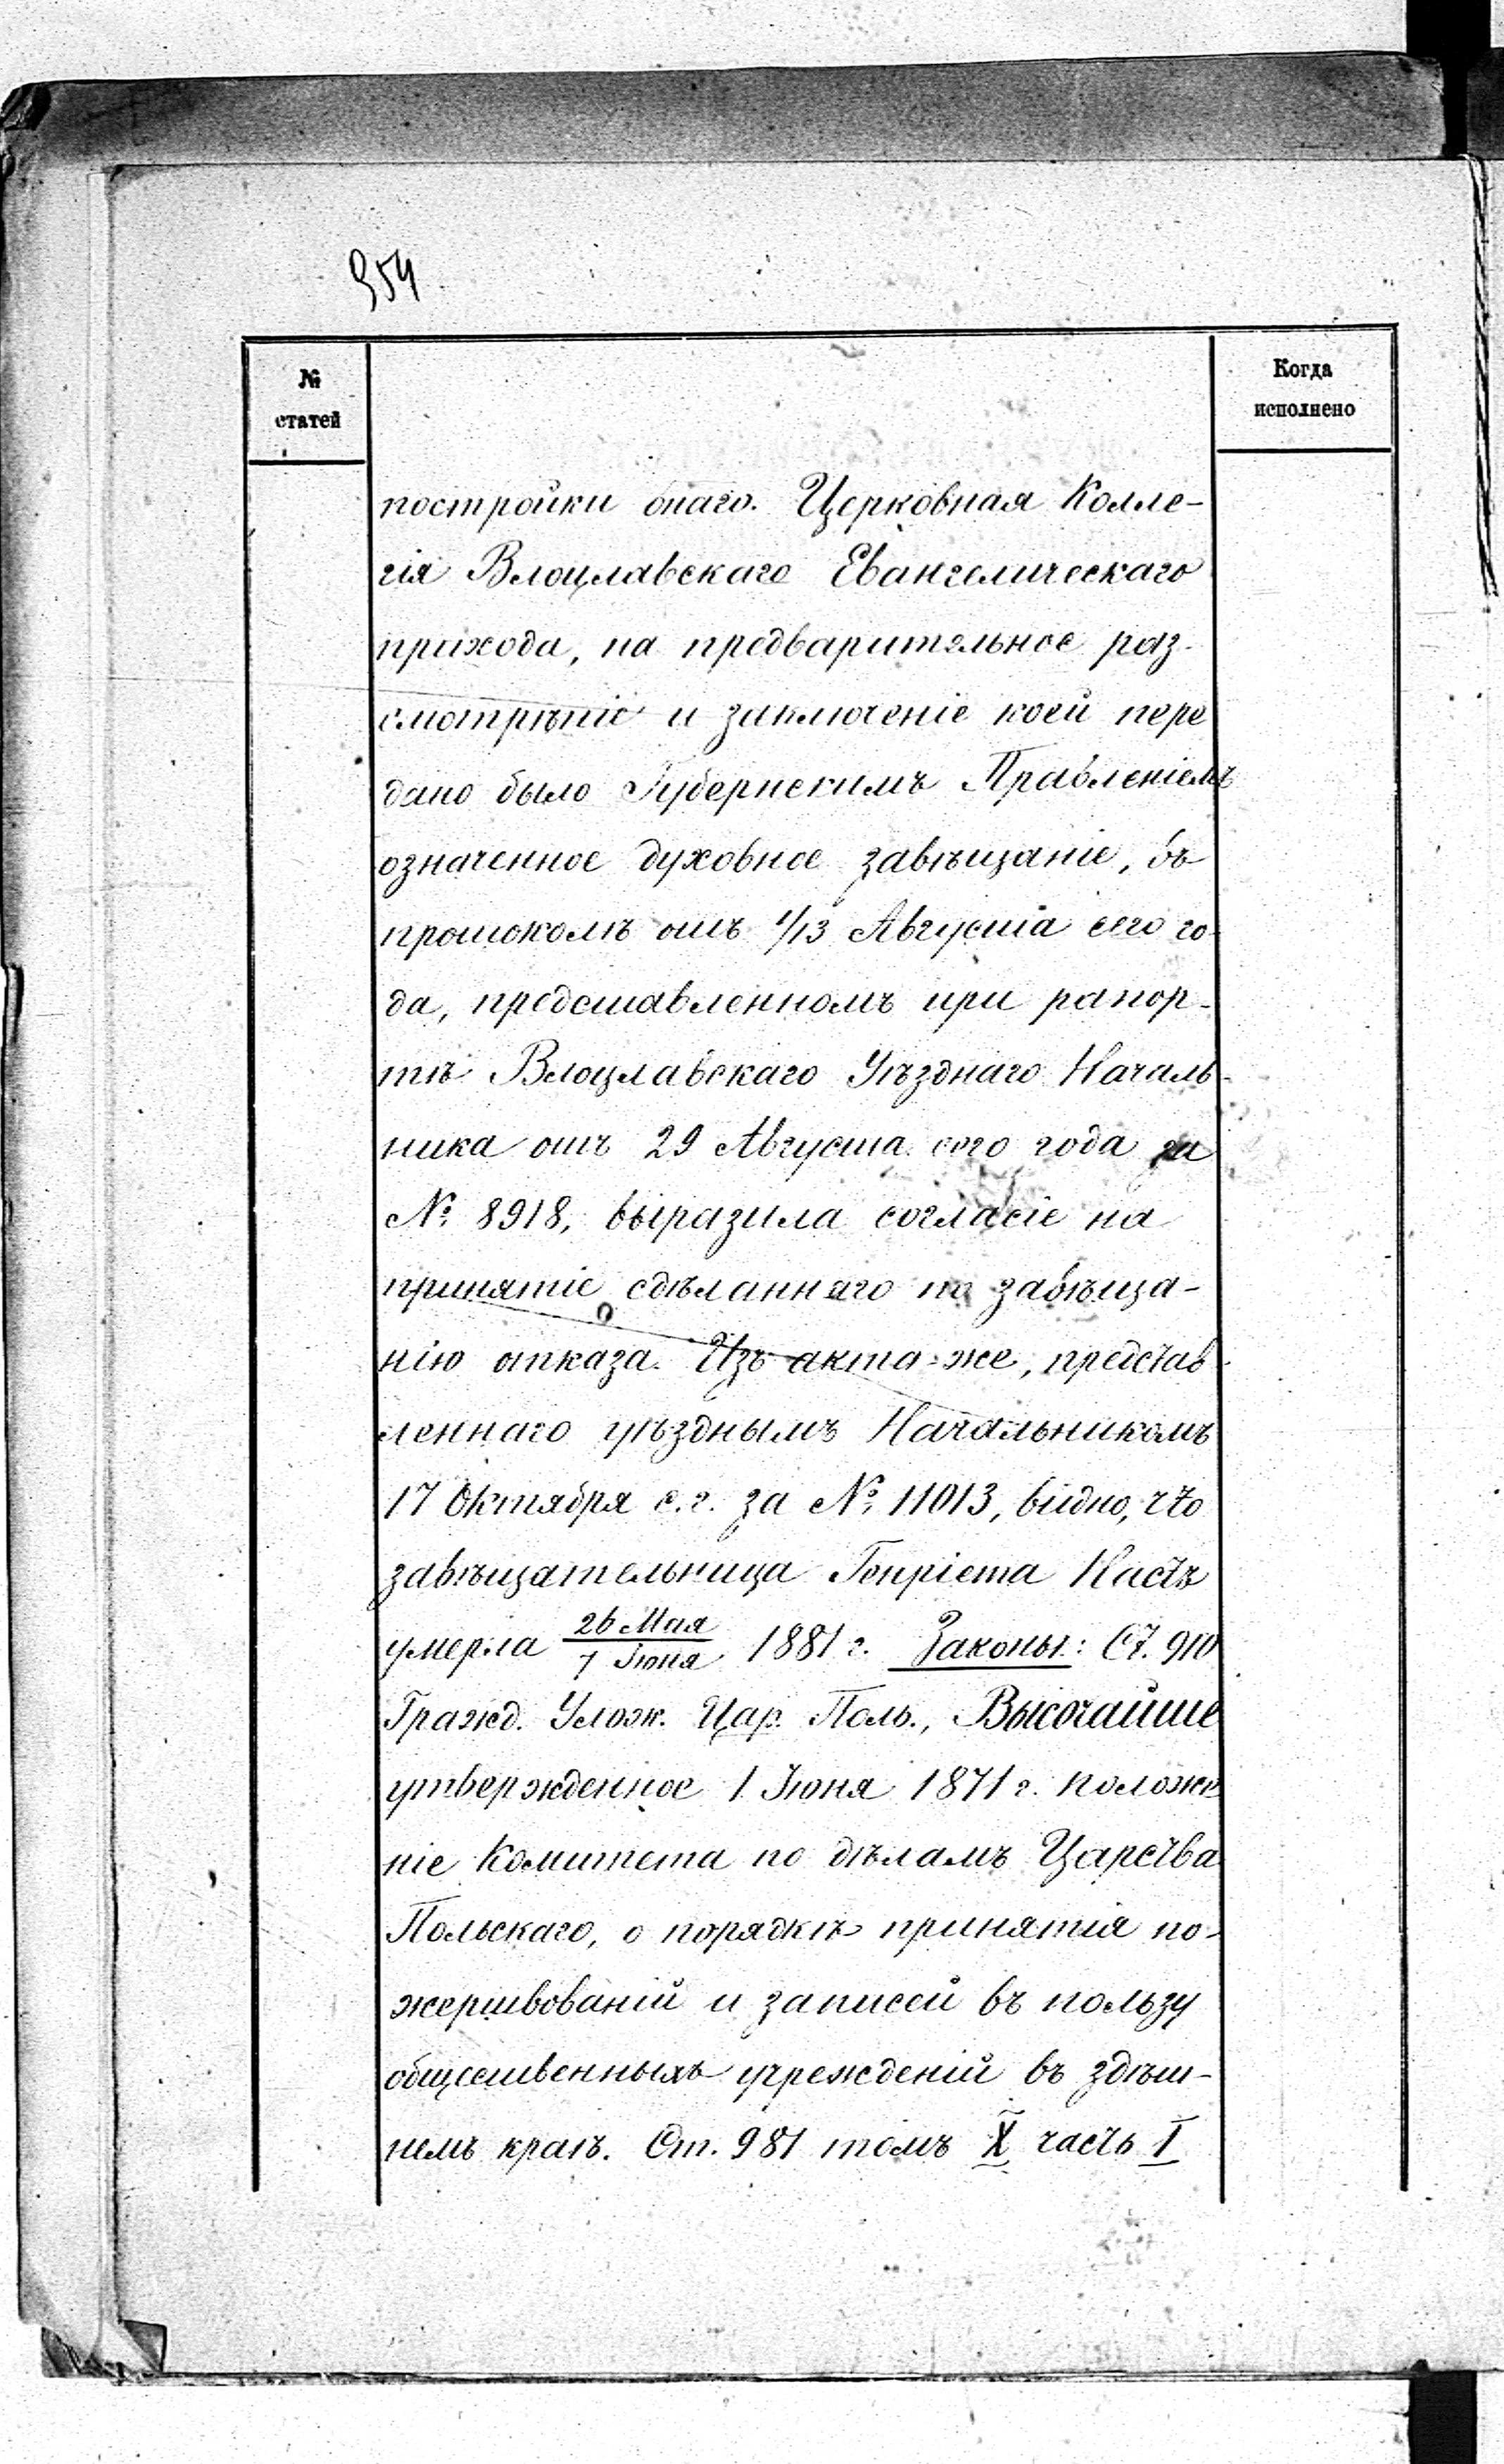 954
№
статей
Когда
исполнено
постройки онаго. Церковная Колле-
гія Влоцлавскаго Евангелическаго
прихода, на предварительное раз-
смотрѣніе и заключеніе коей пере
дано было Губернскимъ Правленіемъ
означенное духовное завѣщаніе, въ
протоколѣ отъ 1/13 Августа сего го-
да, представленномъ при рапор-
тѣ Влоцлавскаго Уѣзднаго Началь-
ника отъ 29 Августа сего года за
№ 8918, выразила согласіе на
принятіе сдѣланнаго по завѣща-
нію отказа. Изъ акта-же, представ-
леннаго уѣзднымъ Начальникомъ
17 Октября с.г. за № 11013, видно, что
завѣщательница Генріета Настъ
умерла 26 Мая / 7 Іюня 1881 г. Законы: Ст. 910
Гражд. Улож. Цар. Поль., Высочайше
утвержденное 1 Іюня 1871 г. положе
ніе Комитета по дѣламъ Царства
Польскаго, о порядкѣ принятія по-
жертвованій и записей въ пользу
общественныхъ учрежденій въ здѣш-
немъ краѣ. Ст. 981 томъ X часть I